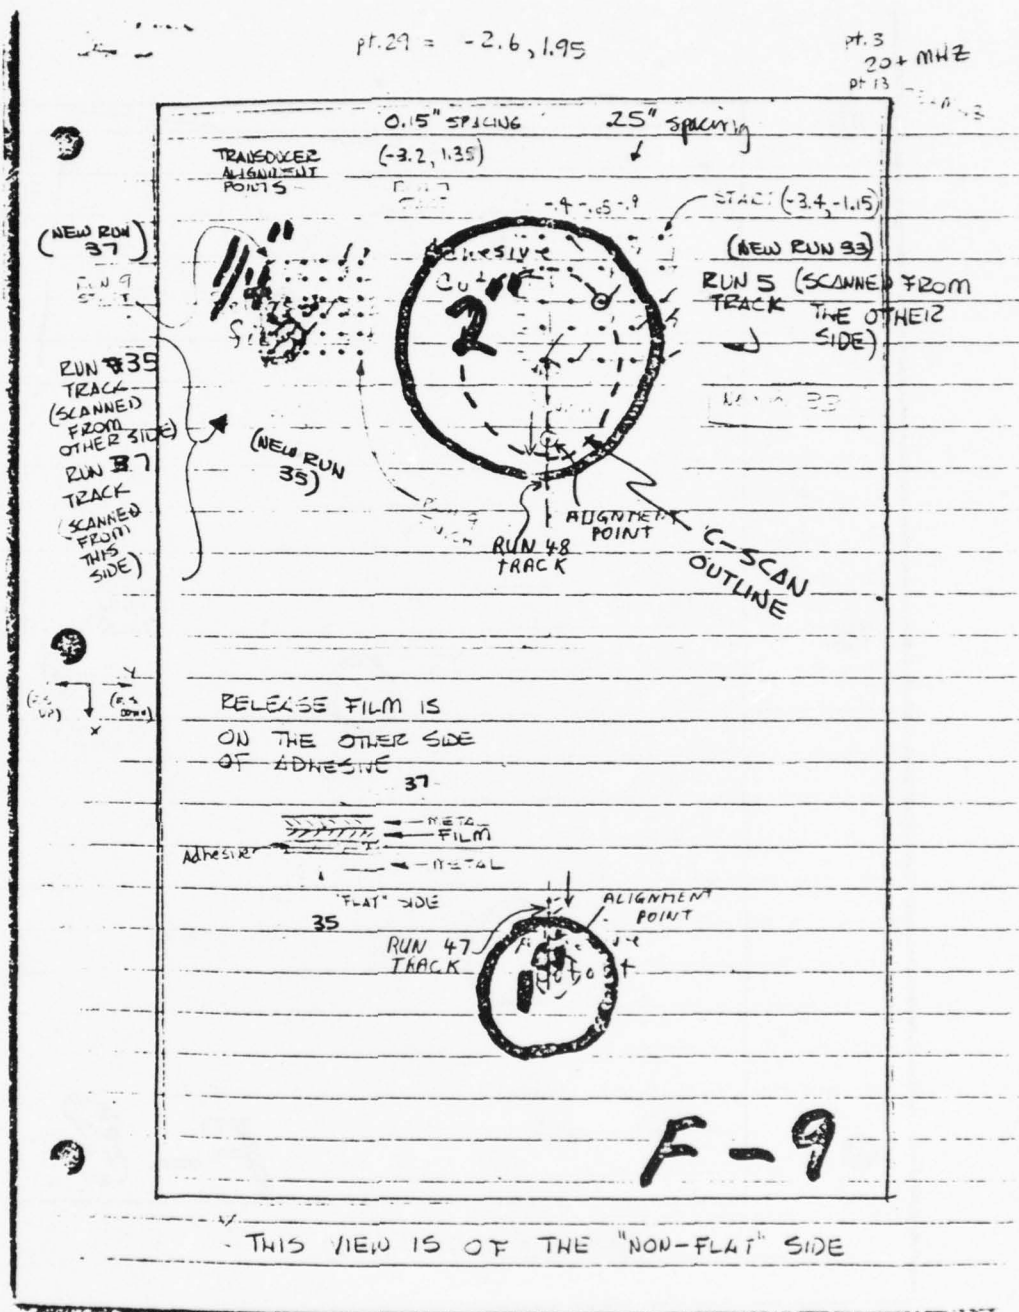 pt. 29 = -2.6, 1.95
pt. 3
20+ MHZ
pt 13
0.15" SPACING
.25" spacing
TRANSDUCER
ALIGNMENT
POINTS
(-3.2, 1.35)
-.4 -.65 -.9
START (-3.4, -1.15)
(NEW RUN
37)
RUN 9
START
(NEW RUN 33)
RUN 5 (SCANNED FROM
TRACK THE OTHER
SIDE)
2"
RUN 35
TRACK
(SCANNED
FROM
OTHER SIDE)
RUN 37
TRACK
(SCANNED
FROM
THIS
SIDE)
(NEW RUN
35)
ALIGNMENT
POINT
RUN 48
TRACK
C-SCAN
OUTLINE
Y
X
RELEASE FILM IS
ON THE OTHER SIDE
OF ADHESIVE
37
METAL
FILM
Adhesive
METAL
"FLAT" SIDE
35
ALIGNMENT
POINT
RUN 47
TRACK
1"
F-9
THIS VIEW IS OF THE "NON-FLAT" SIDE